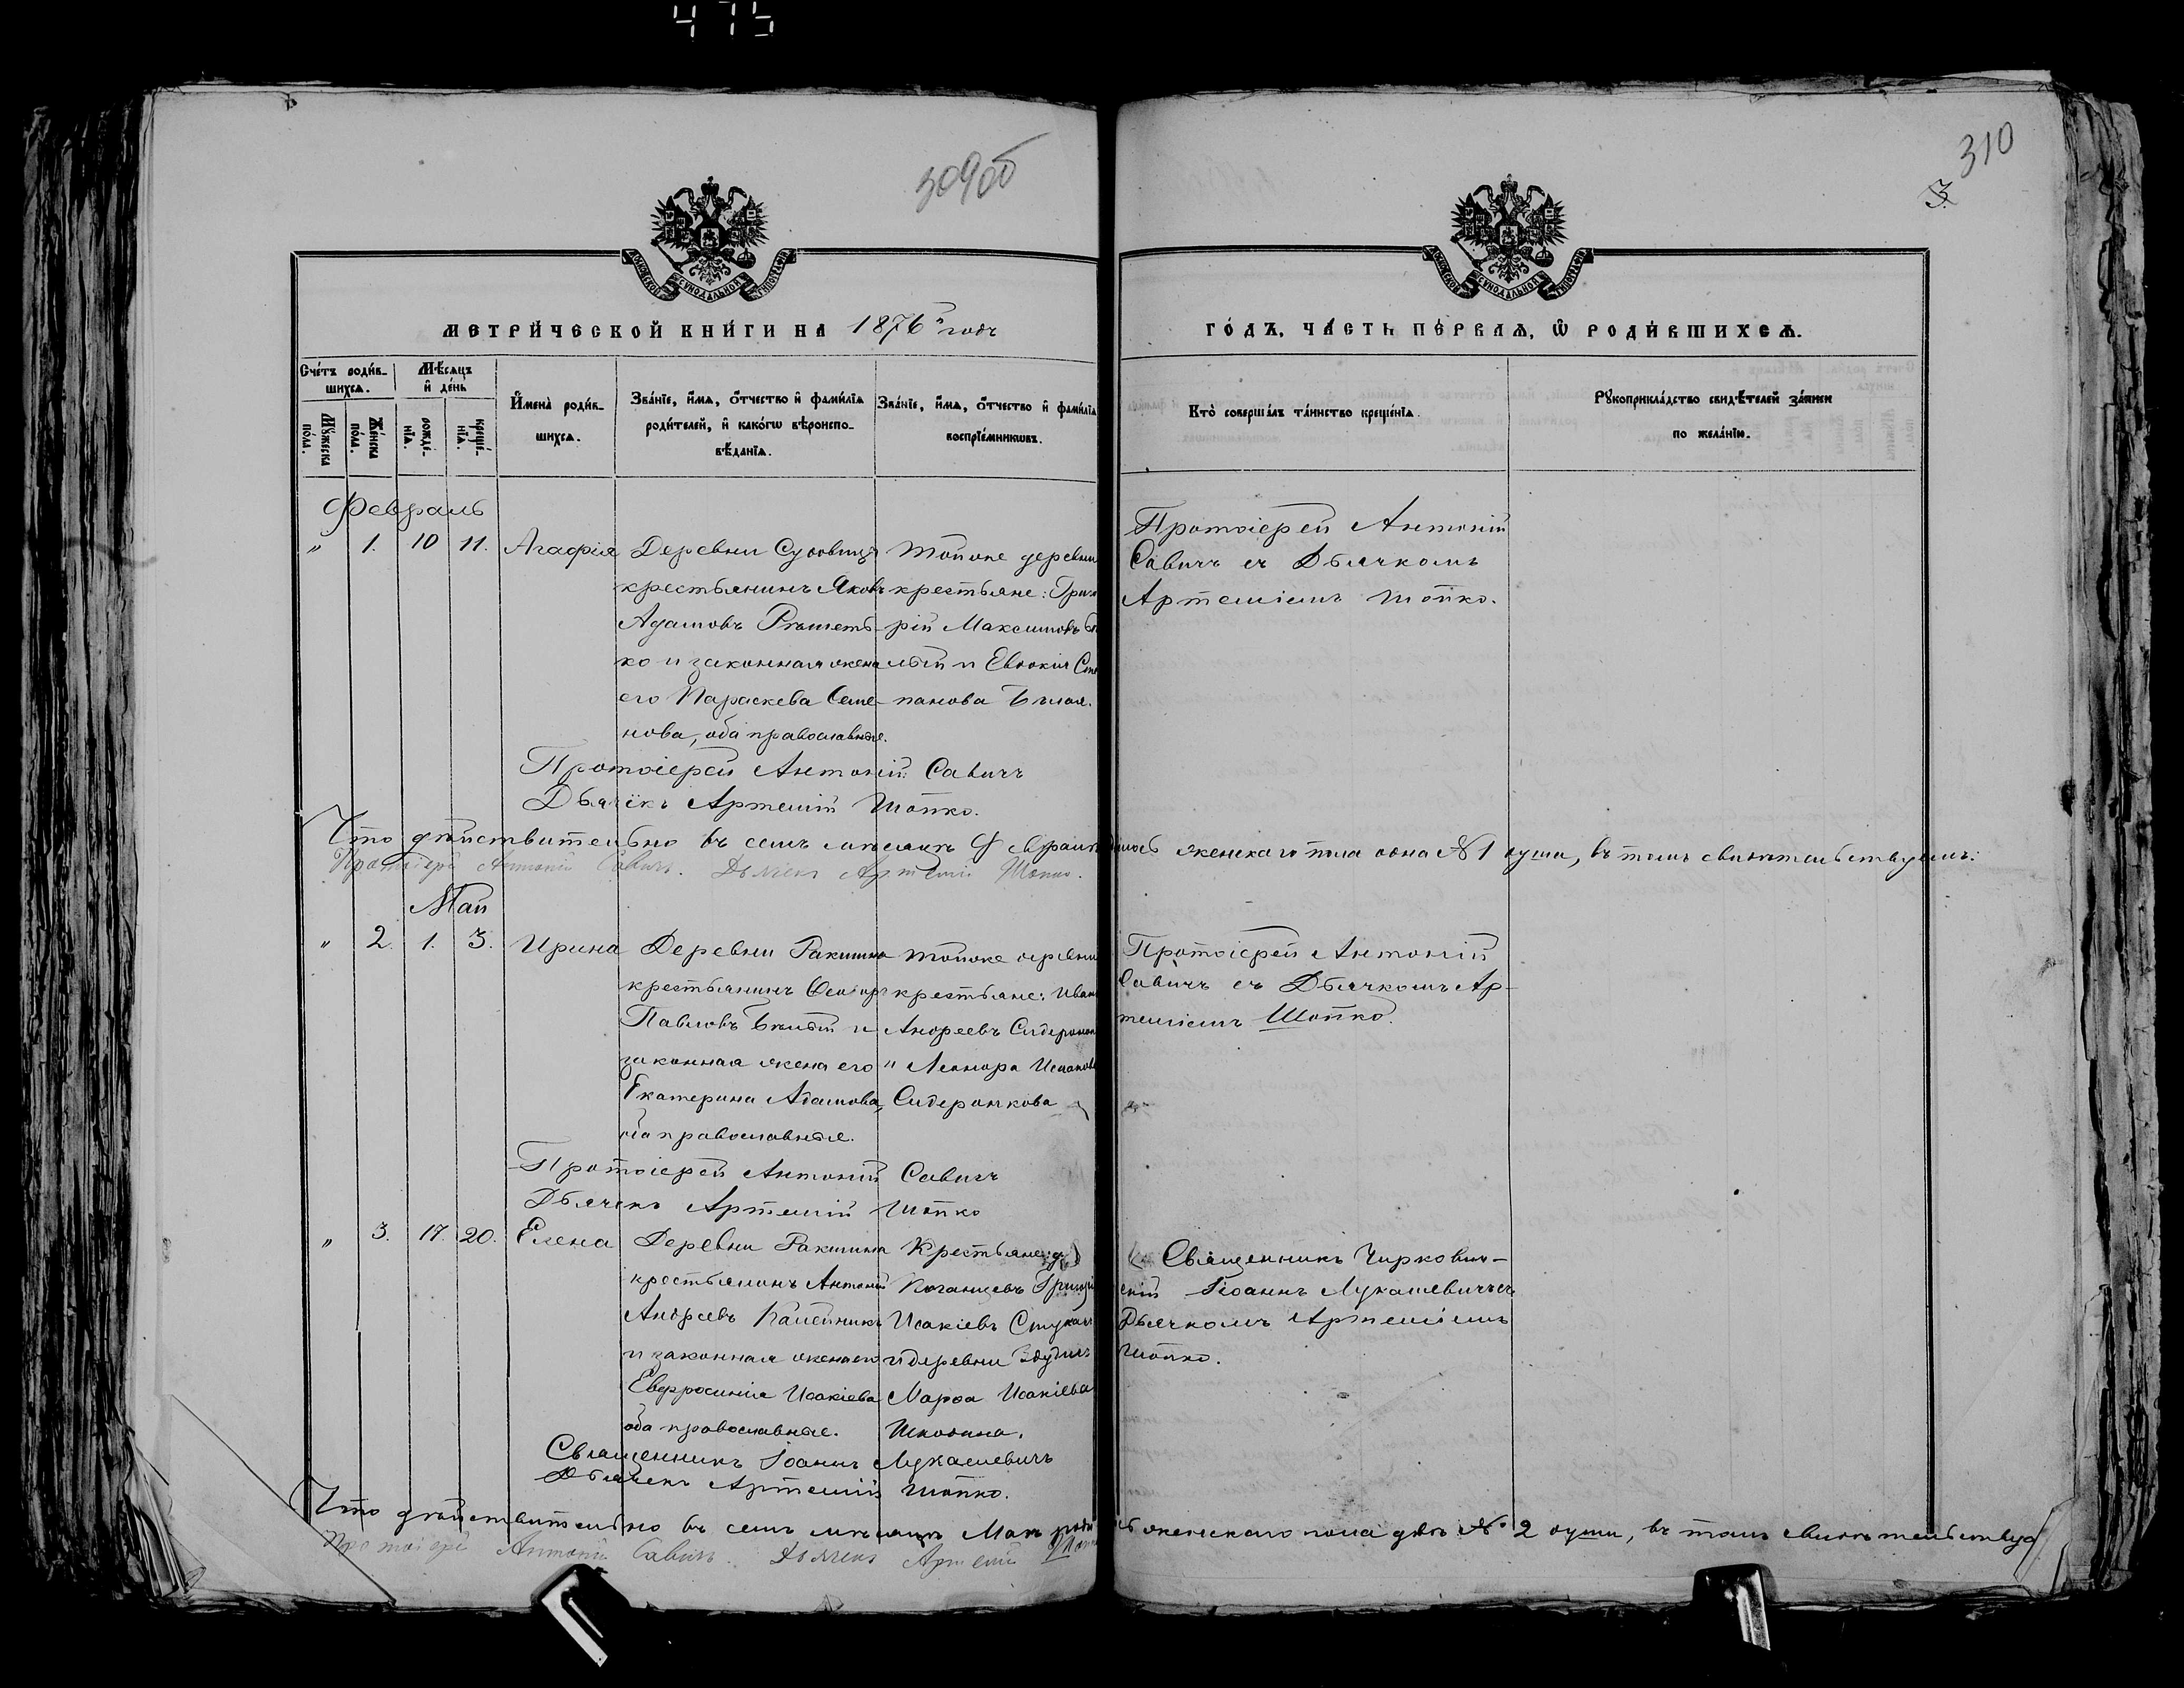 475
309об
310
3.
МЕТРИЧЕСКОЙ КНИГИ НА 1876й годъ
ГОДЪ, ЧАСТЬ ПЕРВАЯ, Ѿ РОДИВШИХСЯ.
Счетъ родив-
шихся.
Мужеска пола.
Женска пола.
Мѣсяцъ
и день
рожде-
нія.
креще-
нія.
Имена родив-
шихся.
Званіе, имя, отчество и фамилія
родителей, и какогѡ вѣроиспо-
вѣданія.
Званіе, имя, отчество и фамилія
воспріемникωвъ.
Кто совершалъ таинство крещенія.
Рукоприкладство свидѣтелей записи
по желанію.
Февраль
" 1. 10 11. Агафія
Деревни
крестьянинъ Яковъ
Адамовъ Рѣшеть-
ко и законная жена
его Параскева Семе-
нова, оба православные.
тойже деревни
крестьяне: Григо
рій Максимовъ
лый и Евдокія Сте
панова Бѣлая.
Протоіерей Антоній
Савичъ съ Дьячкомъ
Артеміемъ Шопко.
Протоіерей Антоній Савичъ
Дьячекъ Артемій Шопко.
Что дѣйствительно въ семъ мѣсяцѣ Февралѣ женскаго пола одна № 1 душа, въ томъ свидѣтельствуемъ:
Протоіерей Антоній Савичъ. Дьячекъ Артемій Шопко.
Май
" 2. 1. 3. Ирина
Деревни Ракшина
крестьянинъ Ѳеодоръ
Павловъ Бѣлый и
законная жена его
Екатерина Адамова,
оба православные.
тойже деревни
крестьяне: Иванъ
Андреевъ
и
Сидеронкова
Протоіерей Антоній
Савичъ съ Дьячкомъ Ар-
теміемъ Шопко.
Протоіерей Антоній Савичъ
Дьячекъ Артемій Шопко
" 3. 17. 20. Елена
Деревни Ракшина
крестьянинъ Антоній
Андреевъ
и законная жена его
Евфросинія Исакіева
оба православные.
Крестьяне: д.
Григорій
Исакіевъ
и деревни
Марѳа Исакіева
Священникъ Чиркович-
скій Іоаннъ Лукашевичъ съ
Дьячкомъ Артеміемъ
Шопко.
Священникъ Іоаннъ Лукашевичъ
Дьячекъ Артемій Шопко.
Что дѣйствительно въ семъ мѣсяцѣ Маѣ женскаго пола двѣ № 2 души, въ томъ свидѣтельствуе
Протоіерей Антоній Савичъ. Дьячекъ Артемій Шопко